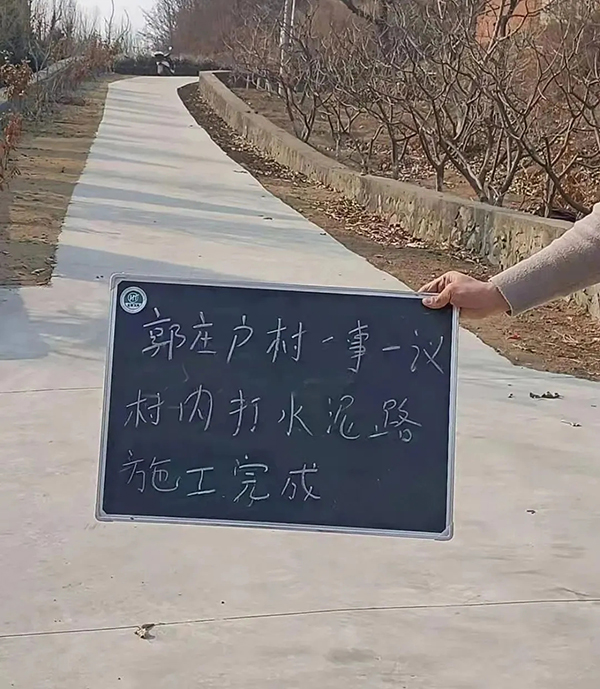 郭庄户村一事一议
村内打水泥路
施工完成